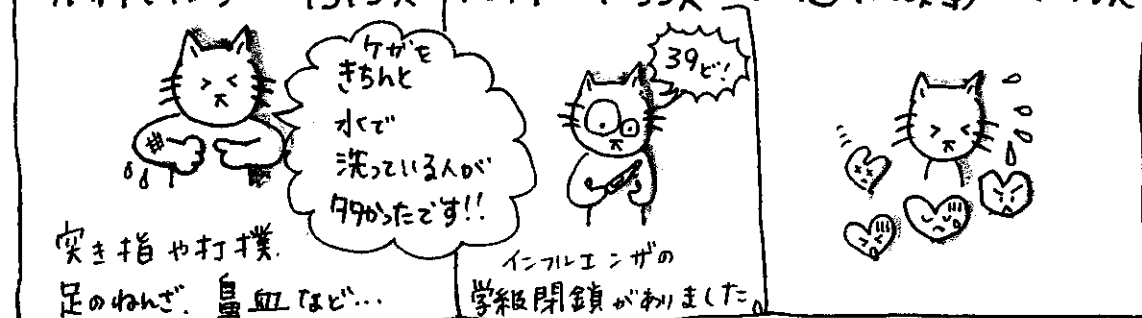 ケガを
きちんと
水で
洗っている人が
多かったです!!
突き指や打撲、
足のねんざ、鼻血など…
39ど!
インフルエンザの
学級閉鎖がありました。